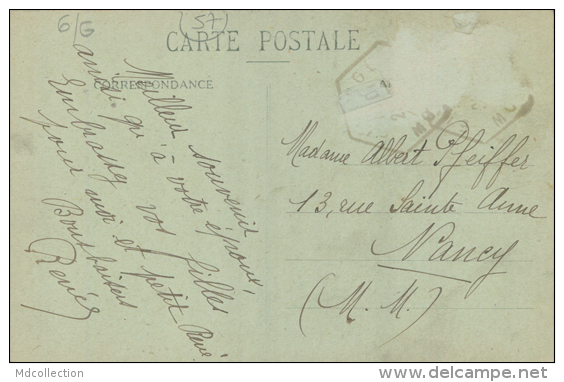 6/G
(57)
CARTE POSTALE
CORRESPONDANCE
Meilleur souvenir
ainsi qu'à votre époux,
Embrassez vos filles
pour moi et petit René
Bons baisers
Renée
Madame Albert Pfeiffer
13, rue Sainte Anne
Nancy
(M. M.)
Mdcollection
www.delcampe.net